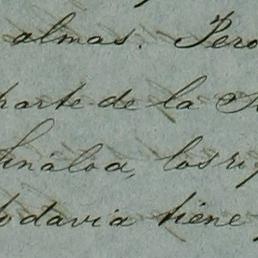 almas. Pero
parte de la
Sinaloa, los
todavia tiene